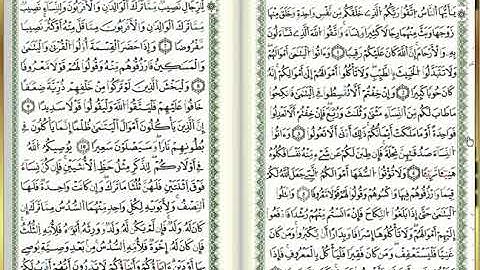 يَٰأَيُّهَا النَّاسُ اتَّقُوا رَبَّكُمُ الَّذِي خَلَقَكُم مِّن نَّفْسٍ وَاحِدَةٍ وَخَلَقَ مِنْهَا
زَوْجَهَا وَبَثَّ مِنْهُمَا رِجَالًا كَثِيرًا وَنِسَاءً وَاتَّقُوا اللَّهَ الَّذِي تَسَّاءَلُونَ
بِهِ وَالْأَرْحَامَ إِنَّ اللَّهَ كَانَ عَلَيْكُمْ رَقِيبًا وَءَاتُوا الْيَتَٰمَىٰ أَمْوَٰلَهُمْ
وَلَا تَتَبَدَّلُوا الْخَبِيثَ بِالطَّيِّبِ وَلَا تَأْكُلُوا أَمْوَٰلَهُمْ إِلَىٰ أَمْوَٰلِكُمْ إِنَّهُ
كَانَ حُوبًا كَبِيرًا وَإِنْ خِفْتُمْ أَلَّا تُقْسِطُوا فِي الْيَتَٰمَىٰ فَانكِحُوا
مَا طَابَ لَكُم مِّنَ النِّسَاءِ مَثْنَىٰ وَثُلَٰثَ وَرُبَٰعَ فَإِنْ خِفْتُمْ أَلَّا تَعْدِلُوا
فَوَٰحِدَةً أَوْ مَا مَلَكَتْ أَيْمَٰنُكُمْ ذَٰلِكَ أَدْنَىٰ أَلَّا تَعُولُوا وَءَاتُوا
النِّسَاءَ صَدُقَٰتِهِنَّ نِحْلَةً فَإِن طِبْنَ لَكُمْ عَن شَيْءٍ مِّنْهُ نَفْسًا فَكُلُوهُ
هَنِيئًا مَّرِيئًا وَلَا تُؤْتُوا السُّفَهَاءَ أَمْوَٰلَكُمُ الَّتِي جَعَلَ اللَّهُ لَكُمْ
قِيَمًا وَارْزُقُوهُمْ فِيهَا وَاكْسُوهُمْ وَقُولُوا لَهُمْ قَوْلًا مَّعْرُوفًا وَابْتَلُوا
الْيَتَٰمَىٰ حَتَّىٰ إِذَا بَلَغُوا النِّكَاحَ فَإِنْ ءَانَسْتُم مِّنْهُمْ رُشْدًا فَادْفَعُوا
إِلَيْهِمْ أَمْوَٰلَهُمْ وَلَا تَأْكُلُوهَا إِسْرَافًا وَبِدَارًا أَن يَكْبَرُوا وَمَن كَانَ
غَنِيًّا فَلْيَسْتَعْفِفْ وَمَن كَانَ فَقِيرًا فَلْيَأْكُلْ بِالْمَعْرُوفِ فَإِذَا
لِّلرِّجَالِ نَصِيبٌ مِّمَّا تَرَكَ الْوَٰلِدَٰنِ وَالْأَقْرَبُونَ وَلِلنِّسَاءِ نَصِيبٌ
مِّمَّا تَرَكَ الْوَٰلِدَٰنِ وَالْأَقْرَبُونَ مِمَّا قَلَّ مِنْهُ أَوْ كَثُرَ نَصِيبًا
مَّفْرُوضًا وَإِذَا حَضَرَ الْقِسْمَةَ أُولُوا الْقُرْبَىٰ وَالْيَتَٰمَىٰ
وَالْمَسَٰكِينُ فَارْزُقُوهُم مِّنْهُ وَقُولُوا لَهُمْ قَوْلًا مَّعْرُوفًا
وَلْيَخْشَ الَّذِينَ لَوْ تَرَكُوا مِنْ خَلْفِهِمْ ذُرِّيَّةً ضِعَٰفًا
خَافُوا عَلَيْهِمْ فَلْيَتَّقُوا اللَّهَ وَلْيَقُولُوا قَوْلًا سَدِيدًا
إِنَّ الَّذِينَ يَأْكُلُونَ أَمْوَٰلَ الْيَتَٰمَىٰ ظُلْمًا إِنَّمَا يَأْكُلُونَ فِي
بُطُونِهِمْ نَارًا وَسَيَصْلَوْنَ سَعِيرًا يُوصِيكُمُ اللَّهُ
فِي أَوْلَٰدِكُمْ لِلذَّكَرِ مِثْلُ حَظِّ الْأُنثَيَيْنِ فَإِن كُنَّ نِسَاءً
فَوْقَ اثْنَتَيْنِ فَلَهُنَّ ثُلُثَا مَا تَرَكَ وَإِن كَانَتْ وَٰحِدَةً فَلَهَا
النِّصْفُ وَلِأَبَوَيْهِ لِكُلِّ وَٰحِدٍ مِّنْهُمَا السُّدُسُ مِمَّا تَرَكَ إِن
كَانَ لَهُ وَلَدٌ فَإِن لَّمْ يَكُن لَّهُ وَلَدٌ وَوَرِثَهُ أَبَوَاهُ فَلِأُمِّهِ الثُّلُثُ
فَإِن كَانَ لَهُ إِخْوَةٌ فَلِأُمِّهِ السُّدُسُ مِن بَعْدِ وَصِيَّةٍ يُوصِي